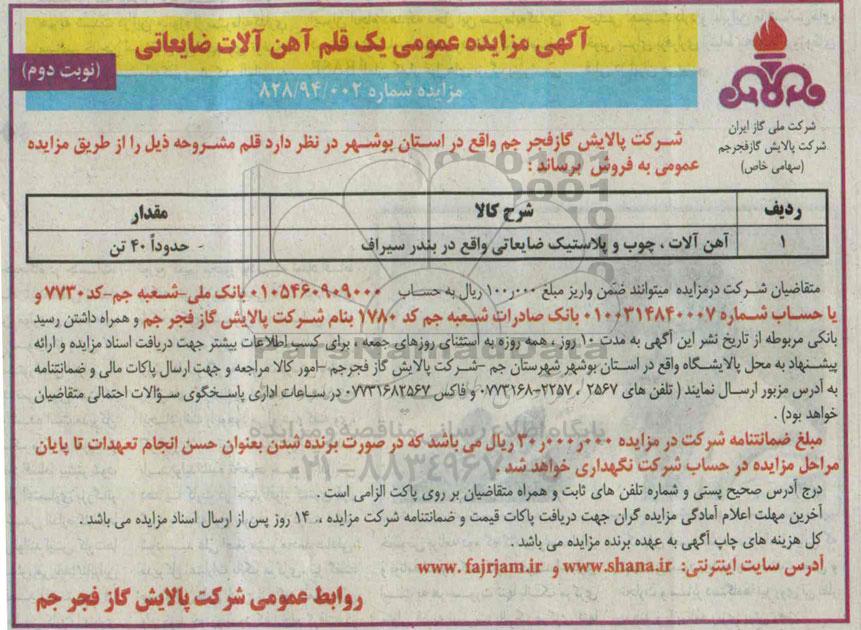 آگهی مزایده عمومی یک قلم آهن آلات ضایعاتی
(نوبت دوم)
مزایده شماره ۸۲۸/۹۴/۰۰۲
شرکت ملی گاز ایران
شرکت پالایش گازفجرجم
(سهامی خاص)
شرکت پالایش گازفجر جم واقع در استان بوشهر در نظر دارد قلم مشروحه ذیل را از طریق مزایده
عمومی به فروش برساند :
ردیف شرح کالا مقدار
۱ آهن آلات ، چوب و پلاستیک ضایعاتی واقع در بندر سیراف - حدوداً ۴۰ تن
متقاضیان شرکت درمزایده میتوانند ضمن واریز مبلغ ۱۰۰٫۰۰۰ ریال به حساب ۰۱۰۵۴۶۰۹۰۹۰۰۰ بانک ملی-شعبه جم-کد۷۷۳۰ و
یا حساب شماره ۰۱۰۰۳۱۴۸۴۰۰۰۷ بانک صادرات شعبه جم کد ۱۷۸۰ بنام شرکت پالایش گاز فجر جم و همراه داشتن رسید
بانکی مربوطه از تاریخ نشر این آگهی به مدت ۱۰ روز ، همه روزه به استثنای روزهای جمعه ، برای کسب اطلاعات بیشتر جهت دریافت اسناد مزایده و ارائه
پیشنهاد به محل پالایشگاه واقع در استان بوشهر شهرستان جم -شرکت پالایش گاز فجرجم -امور کالا مراجعه و جهت ارسال پاکات مالی و ضمانتنامه
به آدرس مزبور ارسال نمایند ( تلفن های ۲۵۶۷ ، ۲۲۵۷-۰۷۷۳۱۶۸ و فاکس ۰۷۷۳۱۶۸۲۵۶۷ در ساعات اداری پاسخگوی سؤالات احتمالی متقاضیان
خواهد بود) .
مبلغ ضمانتنامه شرکت در مزایده ۳۰٫۰۰۰٫۰۰۰ ریال می باشد که در صورت برنده شدن بعنوان حسن انجام تعهدات تا پایان
مراحل مزایده در حساب شرکت نگهداری خواهد شد .
درج آدرس صحیح پستی و شماره تلفن های ثابت و همراه متقاضیان بر روی پاکت الزامی است .
آخرین مهلت اعلام آمادگی مزایده گران جهت دریافت پاکات قیمت و ضمانتنامه شرکت مزایده ، ۱۴ روز پس از ارسال اسناد مزایده می باشد .
کل هزینه های چاپ آگهی به عهده برنده مزایده می باشد .
آدرس سایت اینترنتی: www.shana.ir و www.fajrjam.ir
روابط عمومی شرکت پالایش گاز فجر جم